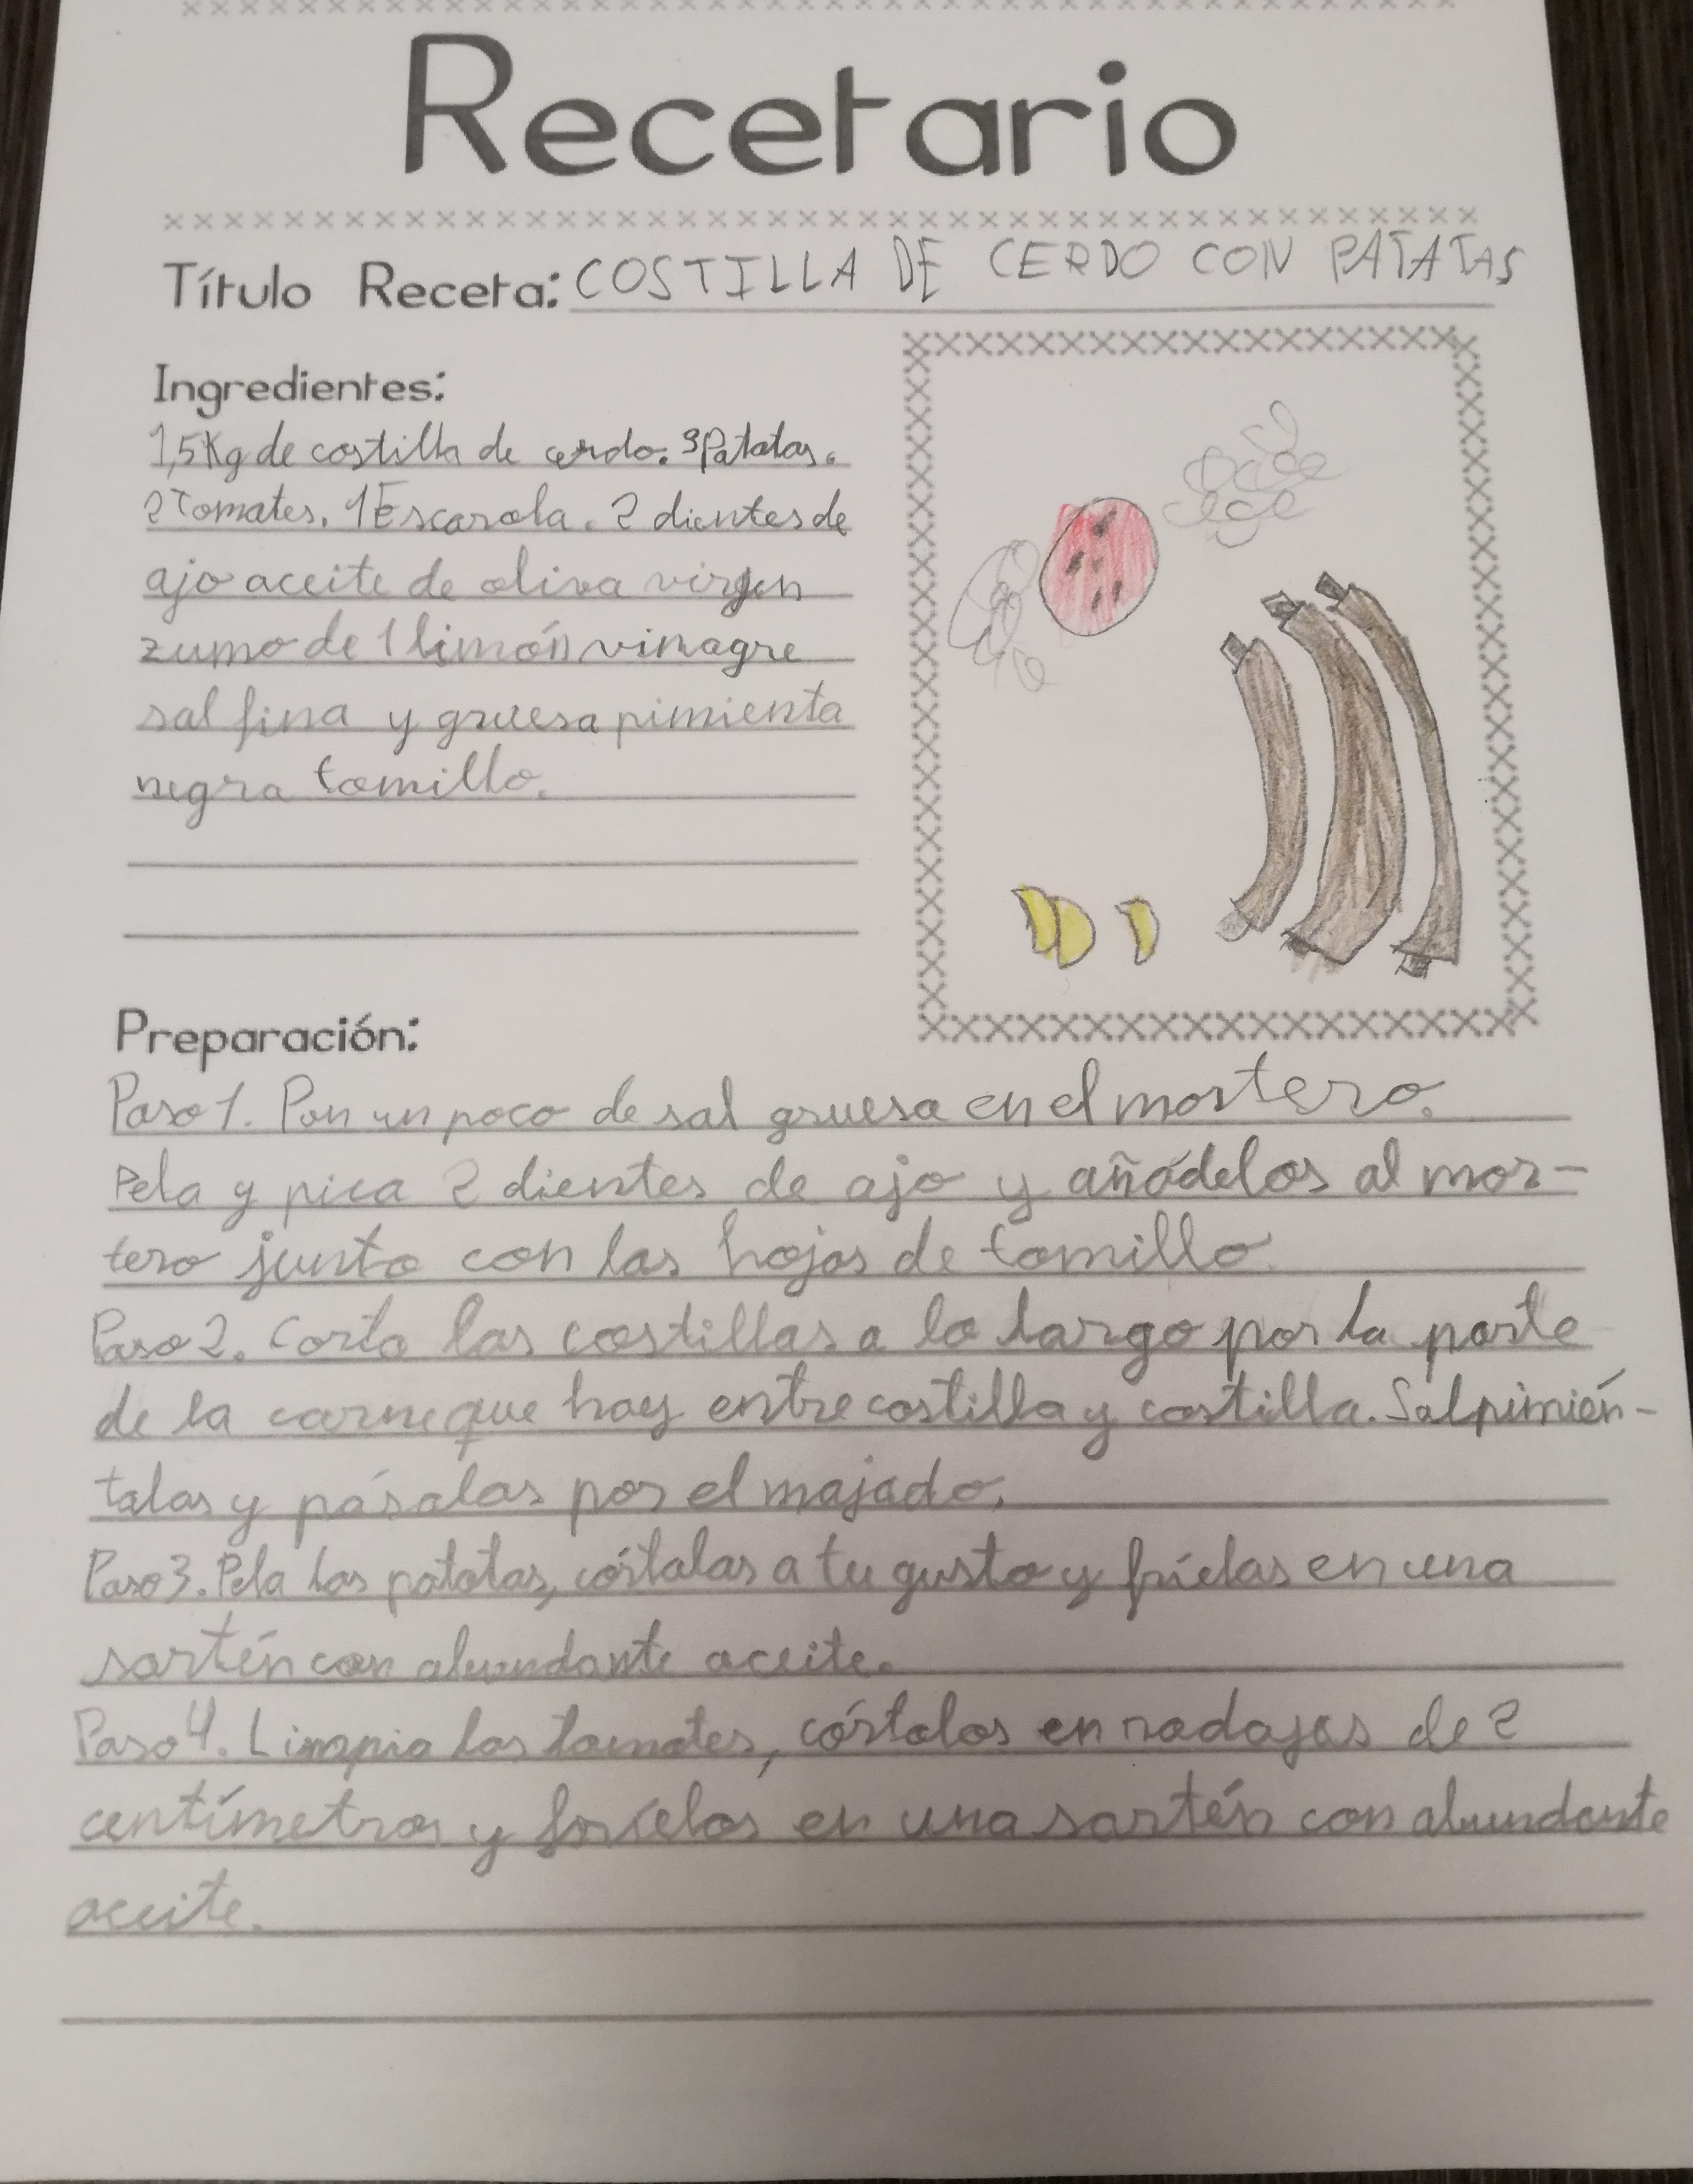 Recetario
Título Receta: COSTILLA DE CERDO CON PATATAS
Ingredientes:
1,5Kg de costilla de cerdo. 3Patatas.
2 Tomates. 1 Escarola. 2 dientes de
ajo aceite de oliva virgen
zumo de 1 limón vinagre
sal fina y gruesa pimienta
negra tomillo.
Preparación:
Paso 1. Pon un poco de sal gruesa en el mortero.
Pela y pica 2 dientes de ajo y añádelos al mor-
tero junto con las hojas de tomillo.
Paso 2. Corta las costillas a lo largo por la parte
de la carne que hay entre costilla y costilla. Salpimién-
talas y pásalas por el majado.
Paso 3. Pela las patatas, córtalas a tu gusto y fríelas en una
sartén con abundante aceite.
Paso 4. Limpia los tomates, córtalos en rodajas de 2
centímetros y fríelos en una sartén con abundante
aceite.